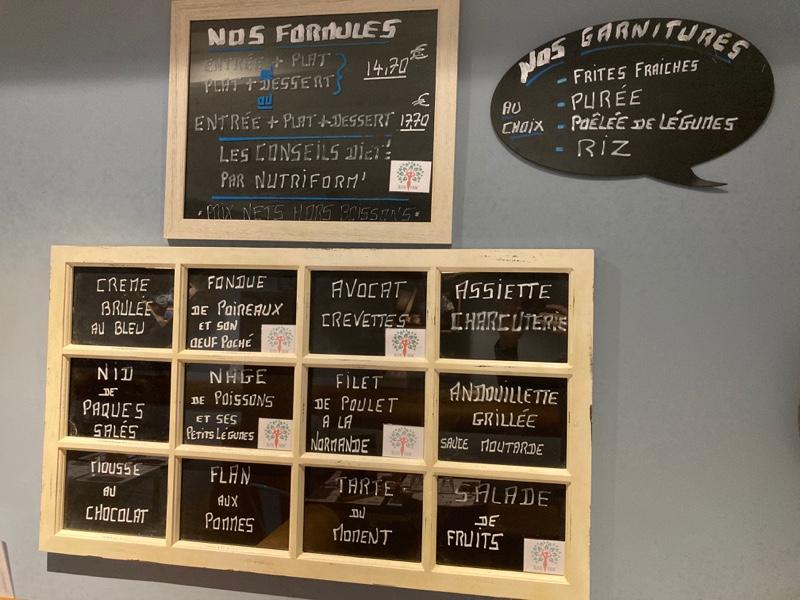 NOS FORMULES
ENTRÉE + PLAT
PLAT + DESSERT
14,70€
OU
ENTRÉE + PLAT + DESSERT 17,70€
LES CONSEILS DIET'
PAR NUTRIFORM'
* PRIX NETS HORS BOISSONS *
NOS GARNITURES
AU
CHOIX
- FRITES FRAICHES
- PURÉE
- POÊLÉE DE LÉGUMES
- RIZ
CREME
BRULÉE
AU BLEU
FONDUE
DE POIREAUX
ET SON
OEUF POCHÉ
AVOCAT
CREVETTES
ASSIETTE
CHARCUTERIE
NID
DE
PAQUES
SALÉS
NAGE
DE POISSONS
ET SES
PETITS LÉGUMES
FILET
DE POULET
A LA
NORMANDE
ANDOUILLETTE
GRILLÉE
SAUCE MOUTARDE
MOUSSE
AU
CHOCOLAT
FLAN
AUX
POMMES
TARTE
DU
MOMENT
SALADE
DE
FRUITS